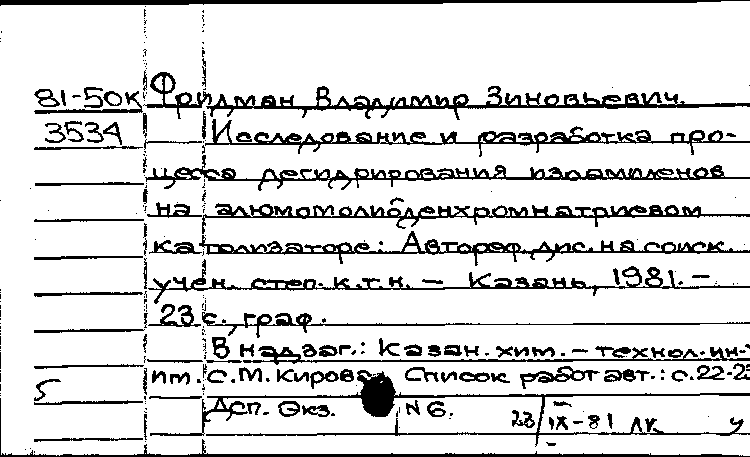 81-50к Фридман, Владимир Зиновьевич.
3534 Исследование и разработка про-
цесса дегидрирования изоамиленов
на алюмомолибденхромнатриевом
катализаторе: Автореф. дис. на соиск.
учен. степ. к.т.н. — Казань, 1981. —
23 с., граф.
В надзаг.: Казан. хим. – технол. ин-т
5 им. С.М. Кирова. Список работ авт.: с. 22-23
Деп. Экз. N 6. 23/IX-81 ЛК у